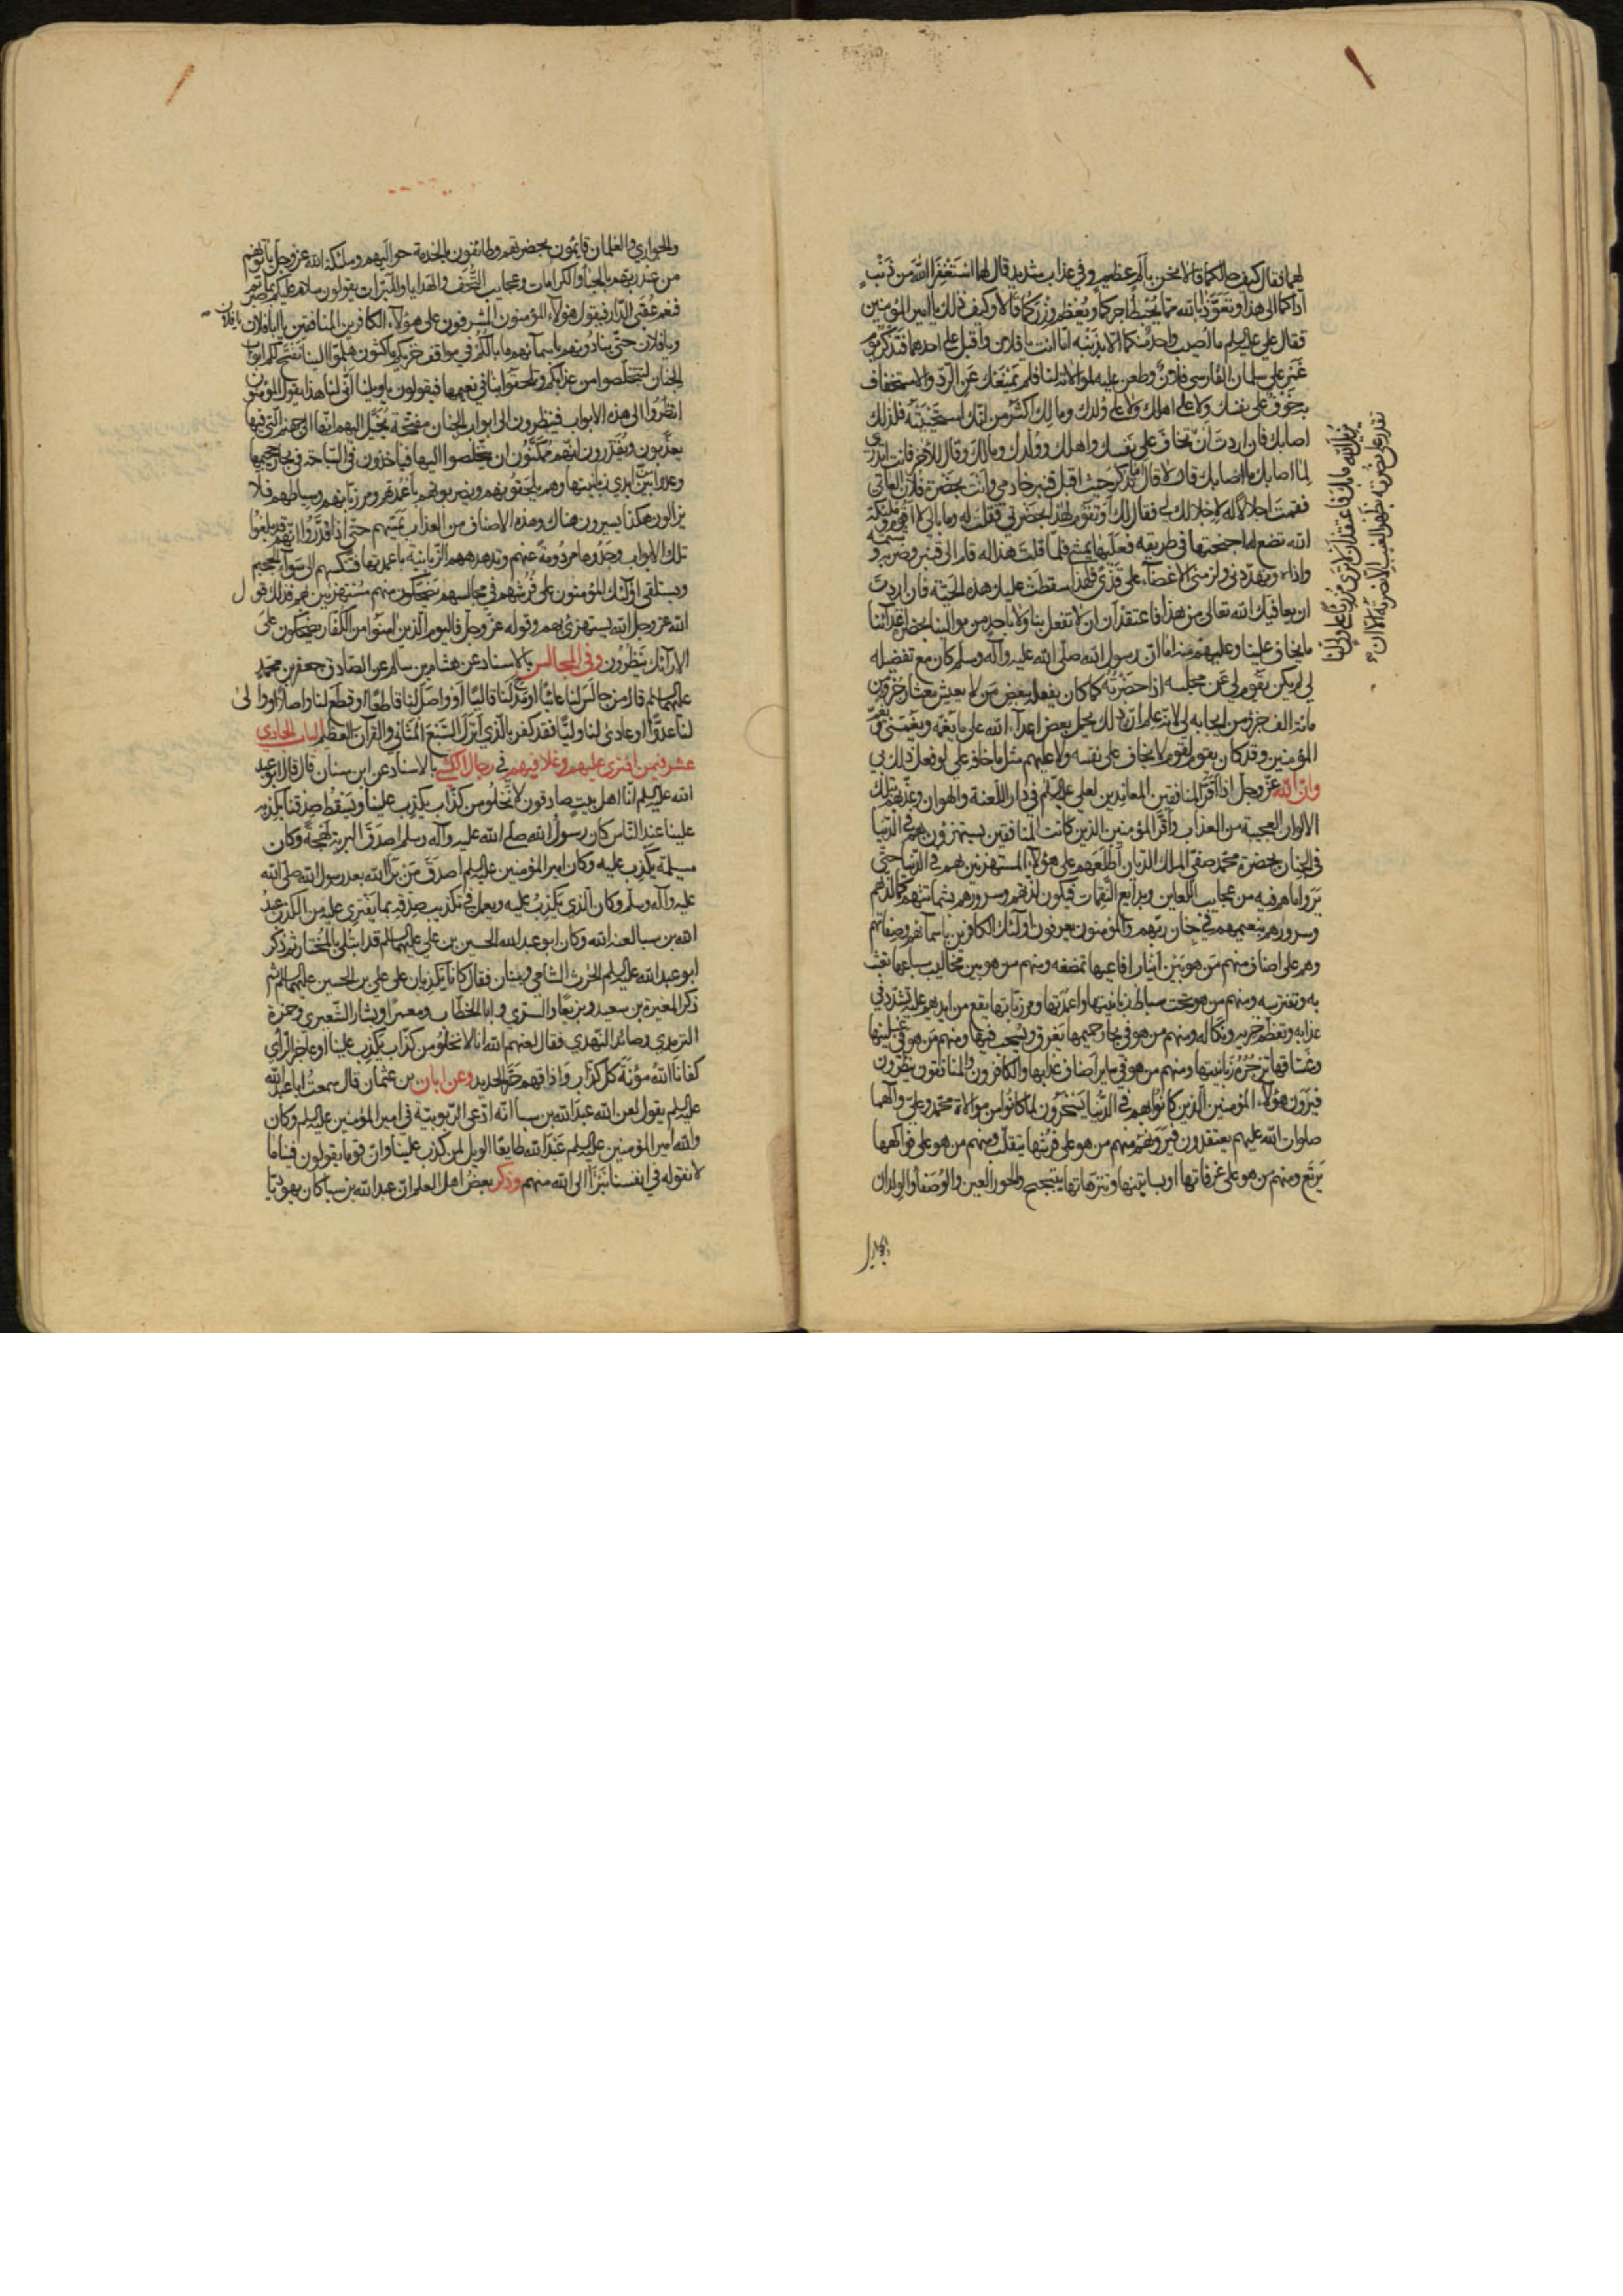 لهما فقال كيف حالكما قالا نحن بألم عظيم وفي عذاب شديد قال لهما استغفرا الله من ذنب
اداكما الى هذا وتعوّذا بالله مما يحبط اجركما ويعظم وزركما قالا وكيف ذلك يا امير المؤمنين
فقال علي عليه السلم ما اصيب واحد منكما الا بذنبه اما انت يا فلان واقبل على احدهما فتذكر يوم
غمز على سلمان الفارسي فلان وطعن عليه لموالاته لنا فلم يمنعك عن الرد والاستخفاف
به خوف على نفسك ولا على اهلك ولا على ولدك ومالك اكثر من انك استحييته فلذلك
اصابك فان اردت ان
تقدر على نصرته بظهر الغيب الا نصرته الا ان
يزيل الله ما بك فاعتقد ان لا ترى مزرئا على ولي لنا
تخاف على نفسك واهلك وولدك ومالك وقال للآخر فانت اتدري
لما اصابك ما اصابك قال لا قال اما تذكر حيث اقبل قنبر خادمي وانت بحضرة فلان العاتي
فقمت اجلالا له لاجلالك لي فقال لك او تقوم لهذا بحضرتي فقلت له وما بالي لا اقوم وملئكة
الله تضع له اجنحتها في طريقه فعليها يمشي فلما قلت هذا له قام الى قنبر وضربه وشتمه
واذاه وتهدّدني والزمني الاغضاء على قذى فلهذا سقطت عليك هذه الحية فان اردت
ان يعافيك الله تعالى من هذا فاعتقد ان لا تفعل بنا ولا باحد من موالينا بحضرة اعدائنا
ما يخاف علينا وعليهم منه اما انّ رسول الله صلّى الله عليه وآله وسلم كان مع تفضيله
لي لم يكن يقوم لي عن مجلسه اذا حضرته كما كان يفعله ببعض من لا يعيش معشار جزء من
مائة الف جزء من ايجابه لي لانه علم ان ذلك يحمل بعض اعداء الله على ما يغمه ويغمّني ويغمّ
المؤمنين وقد كان يقوم لقوم لا يخاف على نفسه ولا عليهم مثل ما خافه علي لو فعل ذلك بي
وان الله عزّ وجل اذا اقرّ المنافقين المعاندين لعلي عليه السلم في دار اللعنة والهوان وعذّبهم بتلك
الالوان العجيبة من العذاب واقرّ المؤمنين الذين كانت المنافقين يستهزؤن بهم في الدنيا
في الجنان بحضرة محمد صفيّ الملك الديّان اطلعهم على هؤلاء المستهزئين بهم في الدنيا حتى
يروا ما هم فيه من عجايب اللعاين وبدايع النقمات فيكون لذتهم وسرورهم بشماتتهم كما لذتهم
وسرورهم بنعيمهم في جنان ربّهم والمؤمنون يعرفون اولئك الكافرين باسمائهم وصفاتهم
وهم على اصناف منهم من هو بين انياب افاعيها تمضغه ومنهم من هو بين مخاليب سباعها تعبث
به وتفترسه ومنهم من هو تحت سياط زبانيتها واعمدتها ومرزباتها يقع من ايديهم عليه تشدّد في
عذابه وتعظم خزيه ونكاله ومنهم من هو في بحار حميمها يغرق ويسحب فيها ومنهم من هو في غسلينها
وغساقها تزجره زبانيتها ومنهم من هو في ساير اصناف عذابها والكافرون والمنافقون ينظرون
فيرون هؤلاء المؤمنين الذين كانوا بهم في الدنيا يسخرون لما كانوا من موالاة محمد وعلي وآلهما
صلوات الله عليهم يعتقدون فيرونهم منهم من هو على فرشها يتقلب ومنهم من هو على فواكهها
يرتع ومنهم من هو على غرفاتها او بساتينها وتنزّهاتها يتبحبح والحور العين والوصفاء والولدان
والجواري والغلمان قايمون بحضرتهم وطائفون بالخدمة حواليهم وملئكة الله عز وجل يأتونهم
من عند ربهم بالحباء والكرامات وعجايب التحف والهدايا والمبرّات يقولون سلام عليكم بما صبرتم
فنعم عقبى الدار فيقول هؤلاء المؤمنون المشرفون على هؤلاء الكافرين المنافقين يا ابا فلان يا فلان
ويا فلان حتى ينادونهم باسمائهم ما بالكم في مواقف خزيكم ماكثون هلمّوا الينا نفتح لكم ابواب
الجنان لتتخلّصوا من عذابكم وتلحقوا بنا في نعيمها فيقولون يا ويلنا انّى لنا هذا يقول المؤمنون
انظروا الى هذه الابواب فينظرون الى ابواب الجنان مفتحة يخيّل اليهم انها الى جهنم التي فيها
يعذّبون ويقدّرون انهم ممكّنون ان يتخلصوا اليها فيأخذون في السباحة في بحار حميمها
وعدوا بين ايدي زبانيتها وهم يلحقونهم ويضربونهم باعمدتهم ومرزباتهم وسياطهم فلا
يزالون هكذا يسيرون هناك وهذه الاصناف من العذاب تمسّهم حتى اذا قدّروا انهم قد بلغوا
تلك الابواب وجدوها مردومة عنهم وتدهدههم الزبانية باعمدتها فتنكسهم الى سواء الجحيم
ويستلقي اولئك المؤمنون على فرشهم في مجالسهم يضحكون منهم مستهزئين بهم فذلك قول
الله عز وجل الله يستهزئ بهم وقوله عز وجل فاليوم الذين امنوا من الكفار يضحكون على
الارائك ينظرون وفي المجالس بالاسناد عن هشام بن سالم عن الصّادق جعفر بن محمد
عليهما السلم قال من جالس لنا عائبا او مدح لنا قاليا او واصل لنا قاطعا او قطع لنا واصلا او والى
لنا عدوّا او عادى لنا وليّا فقد كفر بالذي انزل السبع المثاني والقرآن العظيم الباب الحادي
عشر فيمن افترى عليهم وغلا فيهم في رجال الكشي بالاسناد عن ابن سنان قال قال ابو عبد
الله عليه السلم انّا اهل بيت صادقون لا نخلو من كذّاب يكذب علينا ويسقط صدقنا بكذبه
علينا عند النّاس كان رسول الله صلى الله عليه وآله وسلم اصدق البرية لهجة وكان
مسيلمة يكذب عليه وكان امير المؤمنين عليه السلم اصدق من برأ الله بعد رسول الله صلى الله
عليه وآله وسلم وكان الذي يكذب عليه ويعمل في تكذيب صدقه بما يفتري عليه من الكذب عبد
الله بن سبا لعنه الله وكان ابو عبد الله الحسين بن علي عليهما السلم قد ابتلي بالمختار ثم ذكر
ابو عبد الله عليه السلم الحرث الشامي وبنان فقال كانا يكذبان على علي بن الحسين عليهما السلم ثم
ذكر المغيرة بن سعيد وبزيعا والسري وابا الخطاب ومعمرا وبشار الشعيري وحمزة
الترمدي وصائد النهدي فقال لعنهم الله انا لا نخلو من كذّاب يكذب علينا او عاجز الرأي
كفانا الله مؤنة كل كذاب واذاقهم حرّ الحديد وعن ابان بن عثمان قال سمعت ابا عبد الله
عليه السلم يقول لعن الله عبد الله بن سبا انه ادّعى الربوبيّة في امير المؤمنين عليه السلم وكان
والله امير المؤمنين عليه السلم عبد الله طايعا الويل لمن كذب علينا وان قوما يقولون فينا ما
لا نقوله في انفسنا نبرأ الى الله منهم وذكر بعض اهل العلم ان عبد الله بن سبا كان يهوديّا